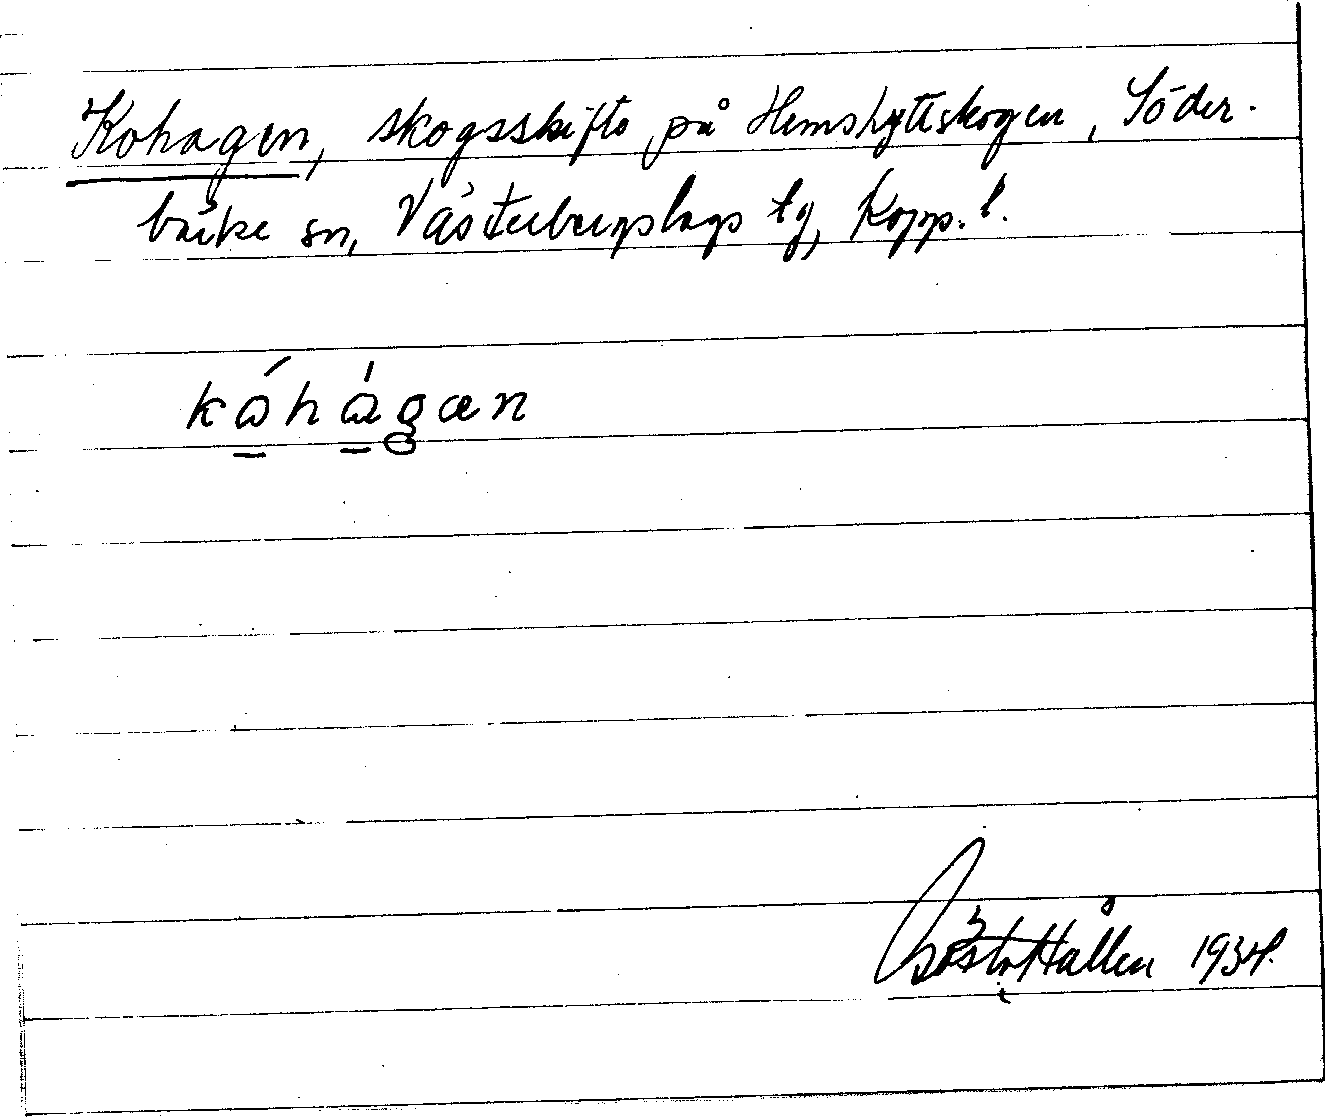 Kohagen, skogsskifte på Hemshyttskogen, Söder-
bärke sn, Västerbergslags tg, Kopp. l.
kóhágæn
Gösta Hållén 1934.